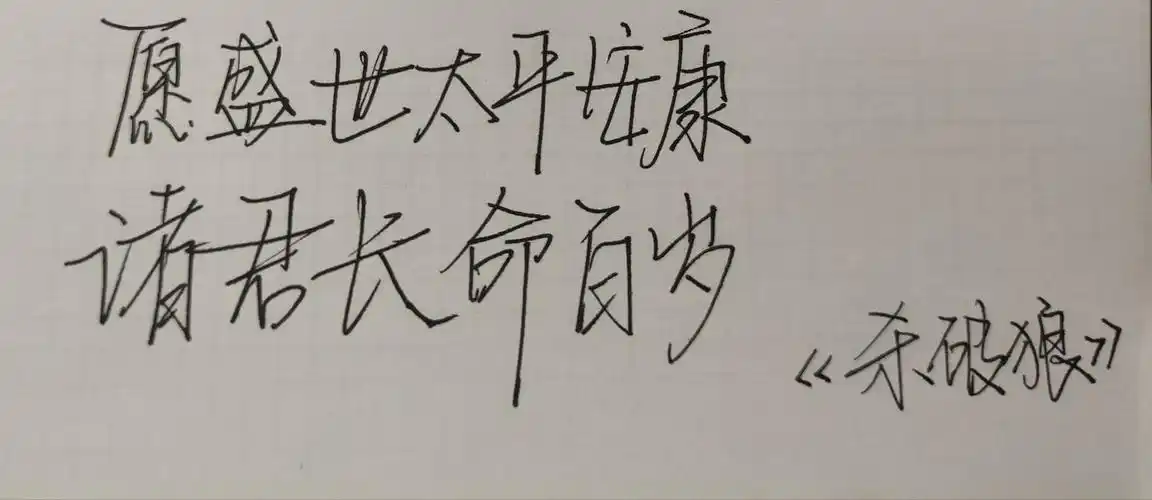 愿盛世太平安康
诸君长命百岁
《杀破狼》